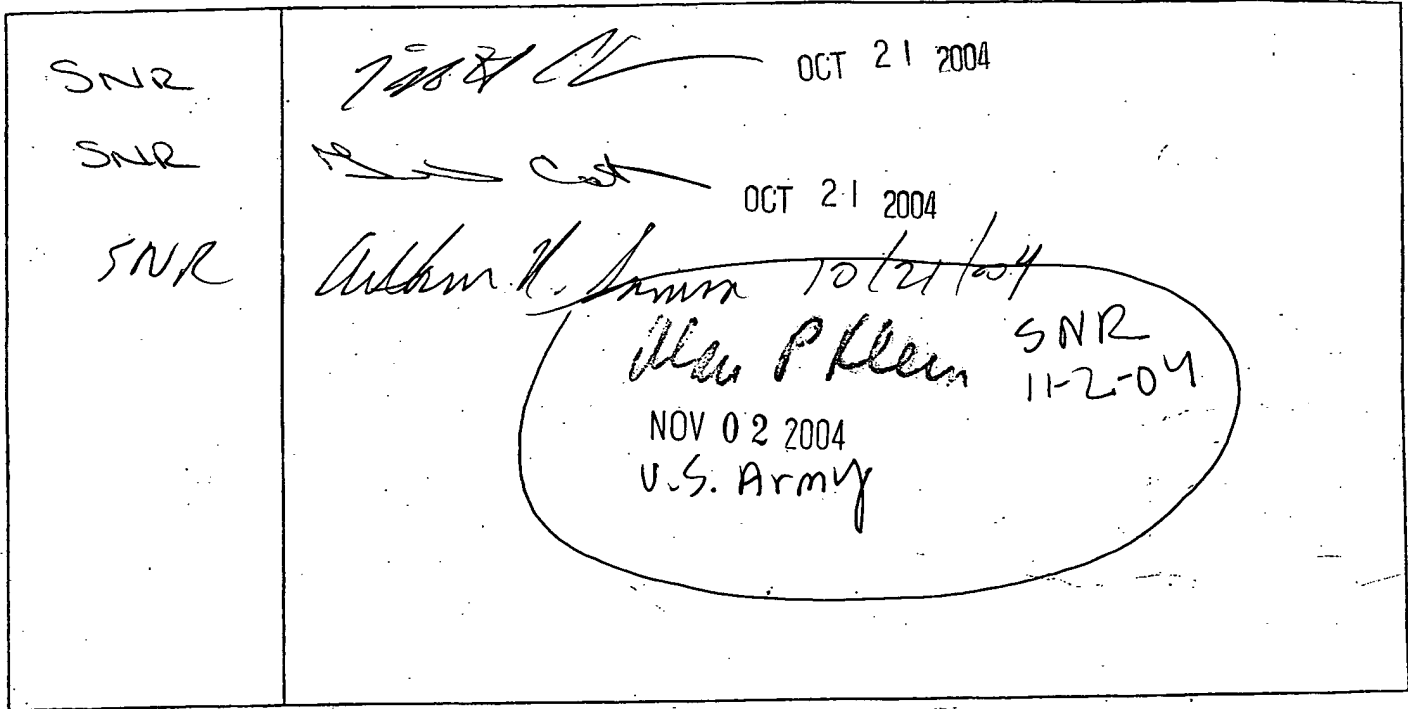 SNR OCT 21 2004
SNR OCT 21 2004
SNR 10/21/2004
Alan P Klein SNR
11-2-04
NOV 02 2004
U.S. Army